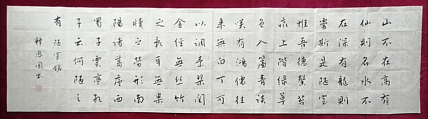 山不在高有
仙則名水不
在深有龍則
靈斯是陋室
惟吾德馨苔
痕上階綠草
色入簾青談
笑有鴻儒往
來無白丁可
以調素琴閱
金經無絲竹
之亂耳無案
牘之勞形南
陽諸葛廬西
蜀子雲亭孔
子云何陋之
有
陋室銘